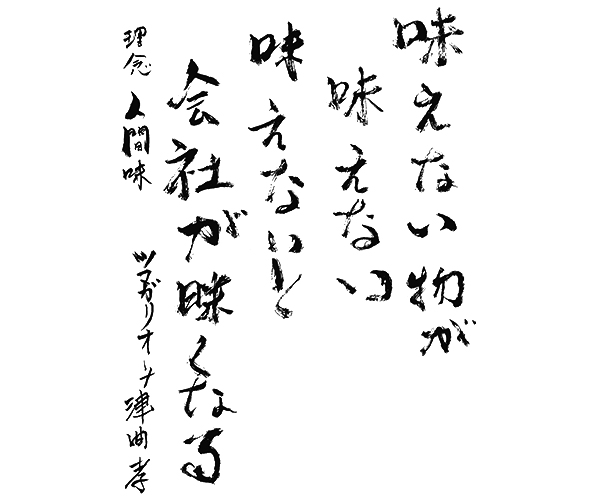 味えない物が
味えない
味えないと
会社が昧くなる
理念 人間味
ツマガリオーナ 津曲孝